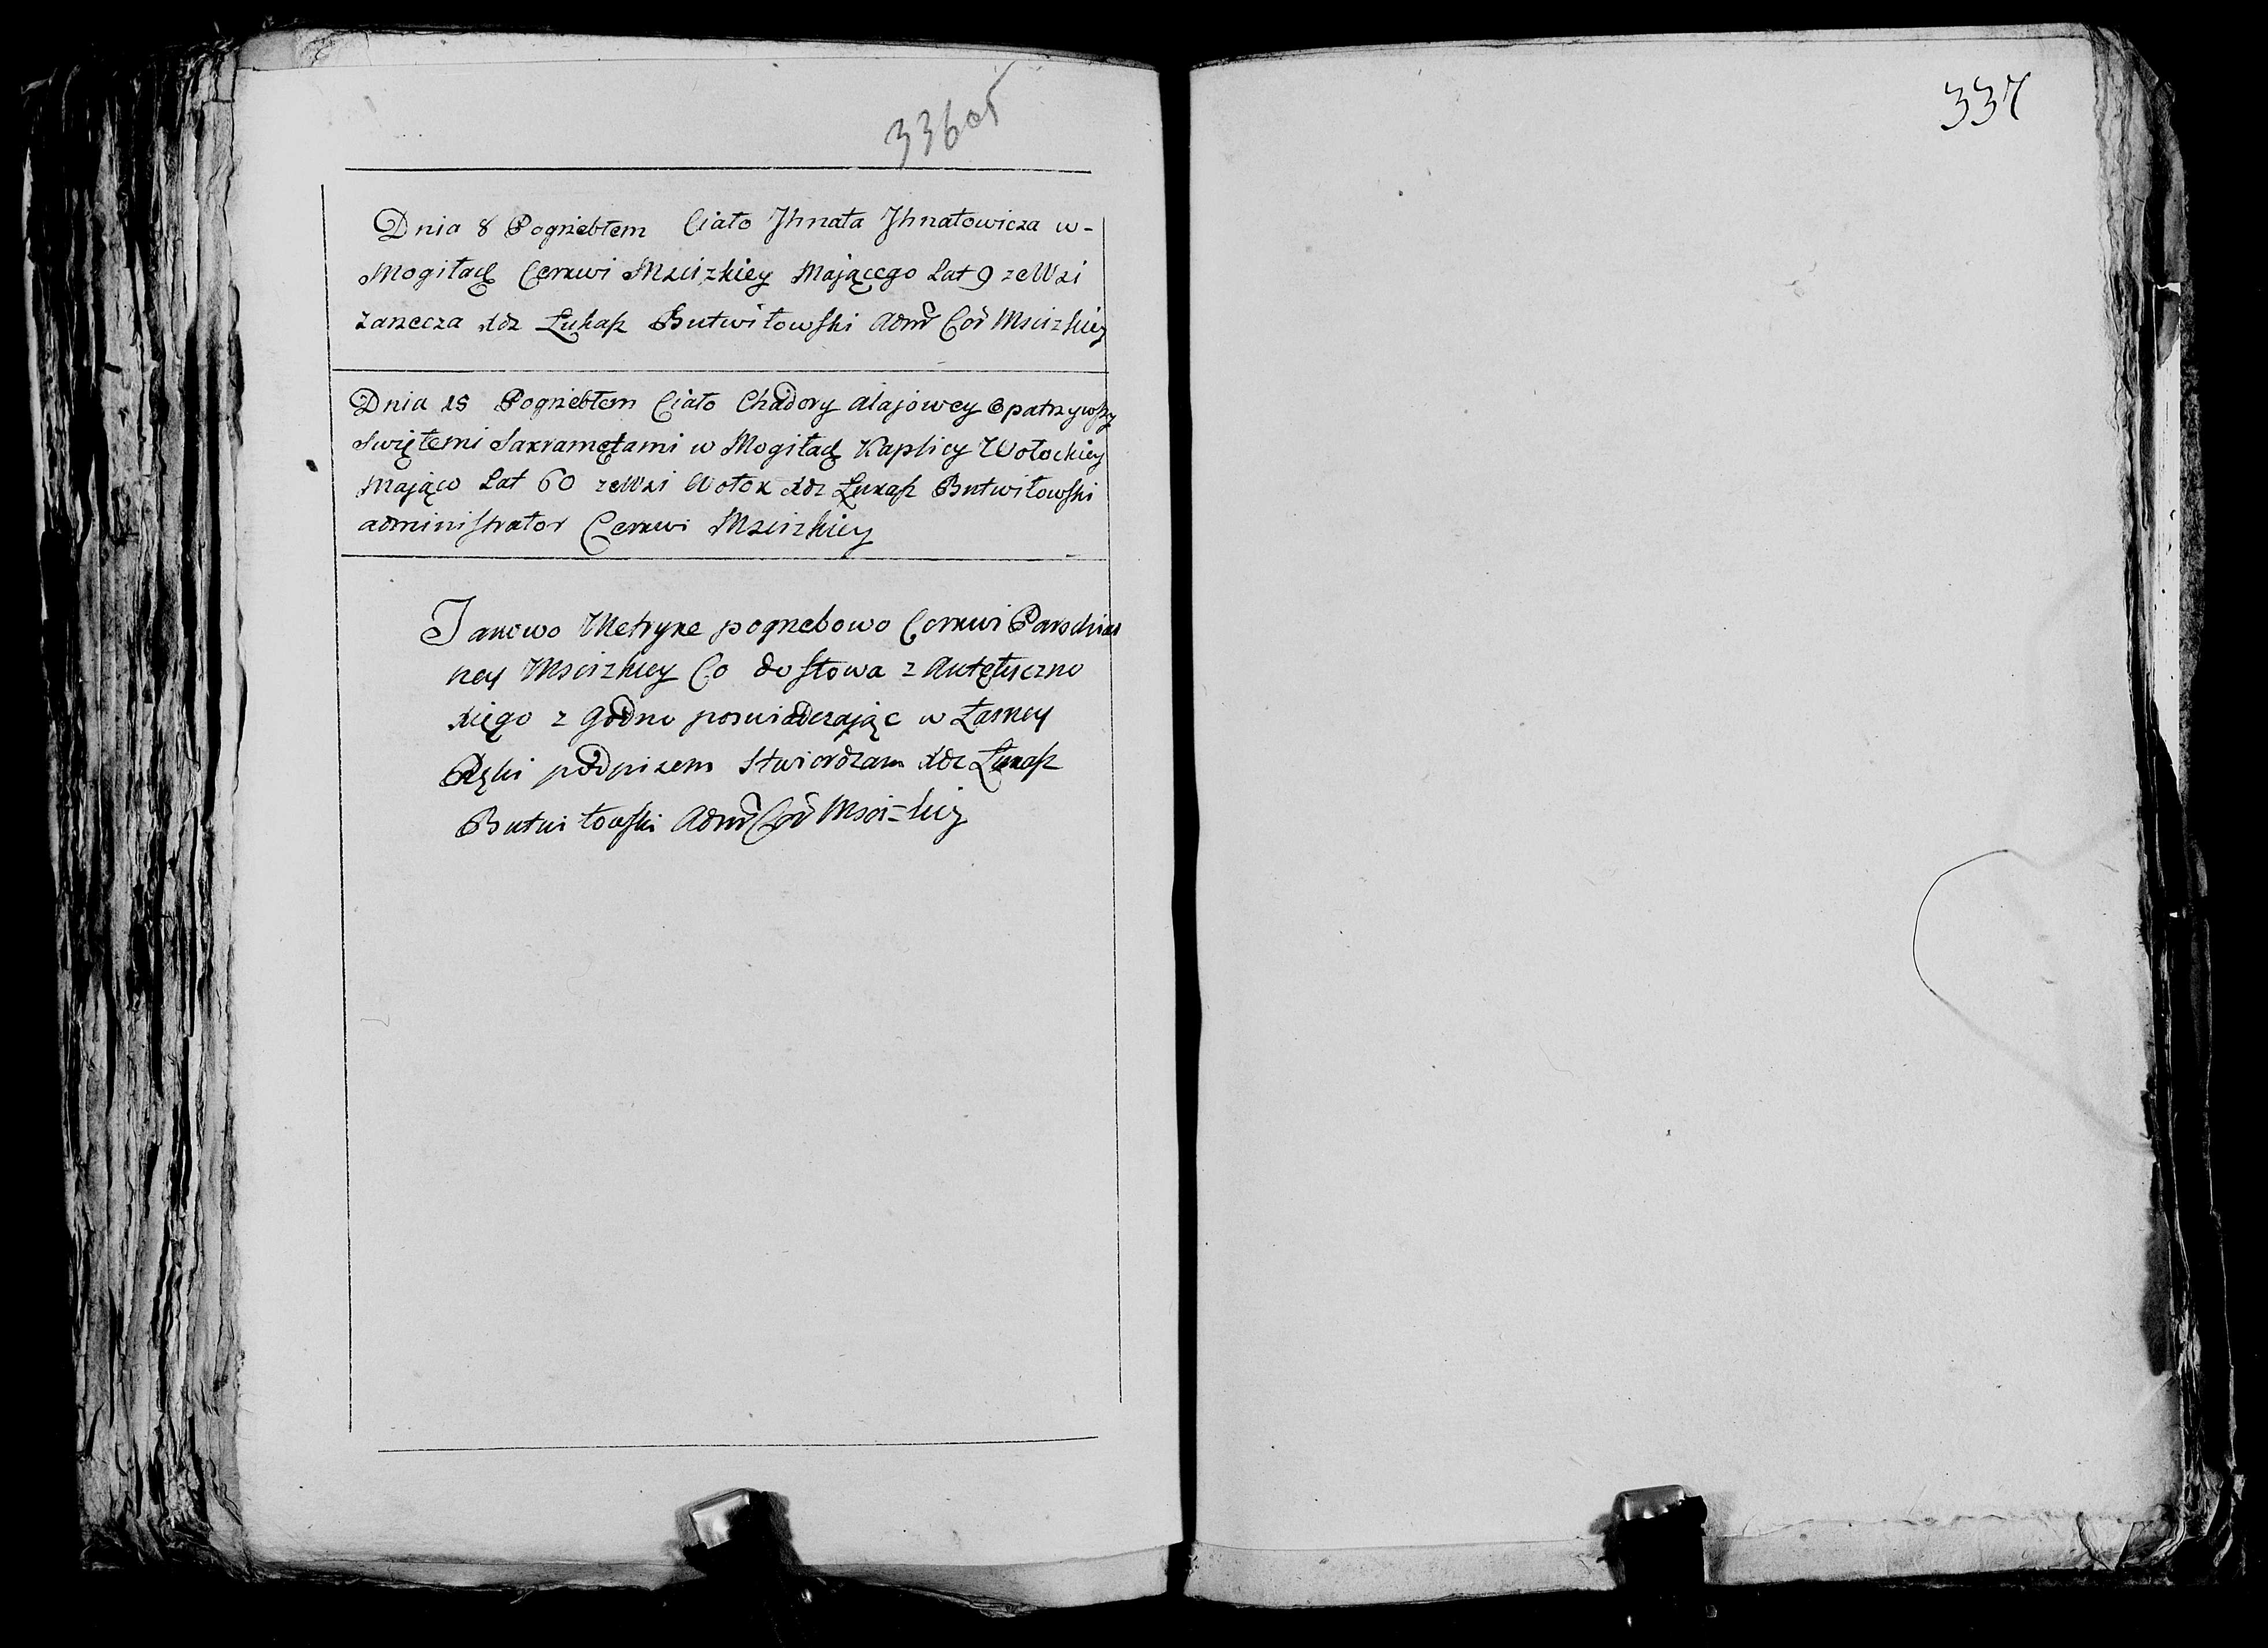 336об
337
Dnia 8 Pogrzebłem Ciało Jhnata Jhnatowicza w-
Mogiłach Cerkwi Mscizkiey Mającego Lat 9 ze Wsi
Zarzecza Xdz Łukasz Butwiłowski Admr Cer Mscizkiey
Dnia 15 Pogrzebłem Ciało Chadory Alajowey Opatrzywszy
Swiętemi Sakramętami w Mogiłach Kaplicy Wołockiey
Mająco Lat 60 ze Wsi Wołok Xdz Łukasz Butwiłowski
administrator Cerkwi Mscizkiey
Takowo Metryke pogrzebowo Cerkwi Parochial
ney Mscizkiey Co do słowa z Autętyczno
Xięgo z godno poswiadczając w Łasney
Ręki podpisem Stwierdzam Xdz Łukasz
Butwiłowski Admr Cer Msci=kiey